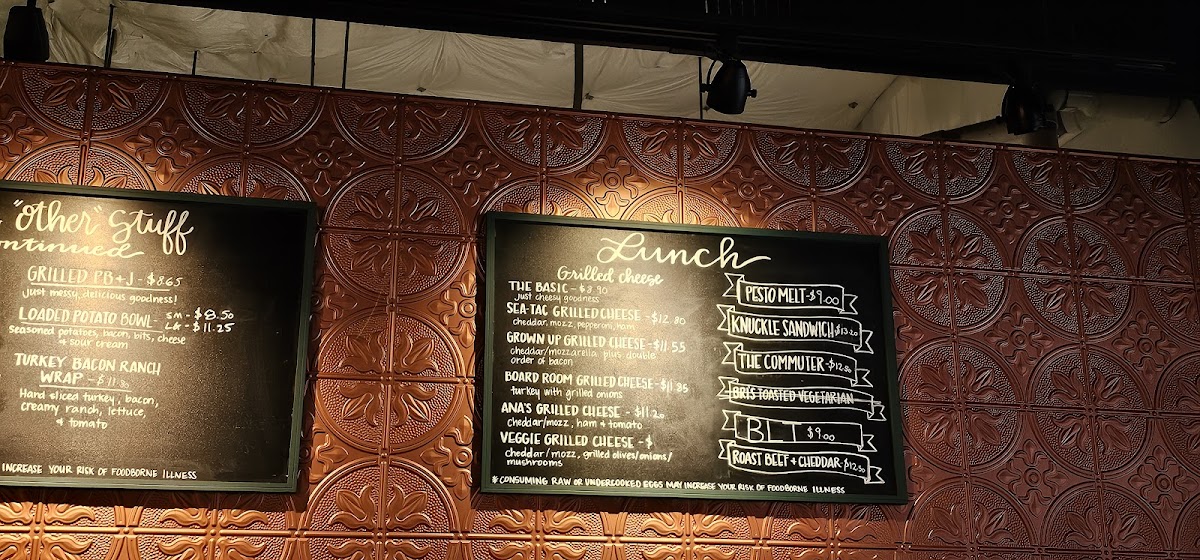 "other" Stuff
ontinued
GRILLED PB+J - $8.65
Just messy, delicious goodness!
LOADED POTATO BOWL - SM - $8.50
LG - $11.25
seasoned potatoes, bacon, bits, cheese
& sour cream
TURKEY BACON RANCH
WRAP - $11.80
Hand sliced turkey, bacon,
creamy ranch, lettuce,
& tomato
INCREASE YOUR RISK OF FOODBORNE ILLNESS
Lunch
Grilled cheese
THE BASIC - $8.90
Just cheesy goodness
SEA-TAC GRILLED CHEESE - $12.80
cheddar, mozz, pepperoni, ham
GROWN UP GRILLED CHEESE - $11.55
cheddar/mozzarella plus double
order of bacon
BOARD ROOM GRILLED CHEESE - $11.35
turkey with grilled onions
ANA'S GRILLED CHEESE - $11.20
cheddar/mozz, ham & tomato
VEGGIE GRILLED CHEESE - $
cheddar/mozz, grilled olives/onions/
mushrooms
PESTO MELT - $9.00
KNUCKLE SANDWICH $13.20
THE COMMUTER - $12.50
BRI'S TOASTED VEGETARIAN
BLT $9.00
ROAST BEEF + CHEDDAR - $12.50
* CONSUMING RAW OR UNDERCOOKED EGGS MAY INCREASE YOUR RISK OF FOODBORNE ILLNESS